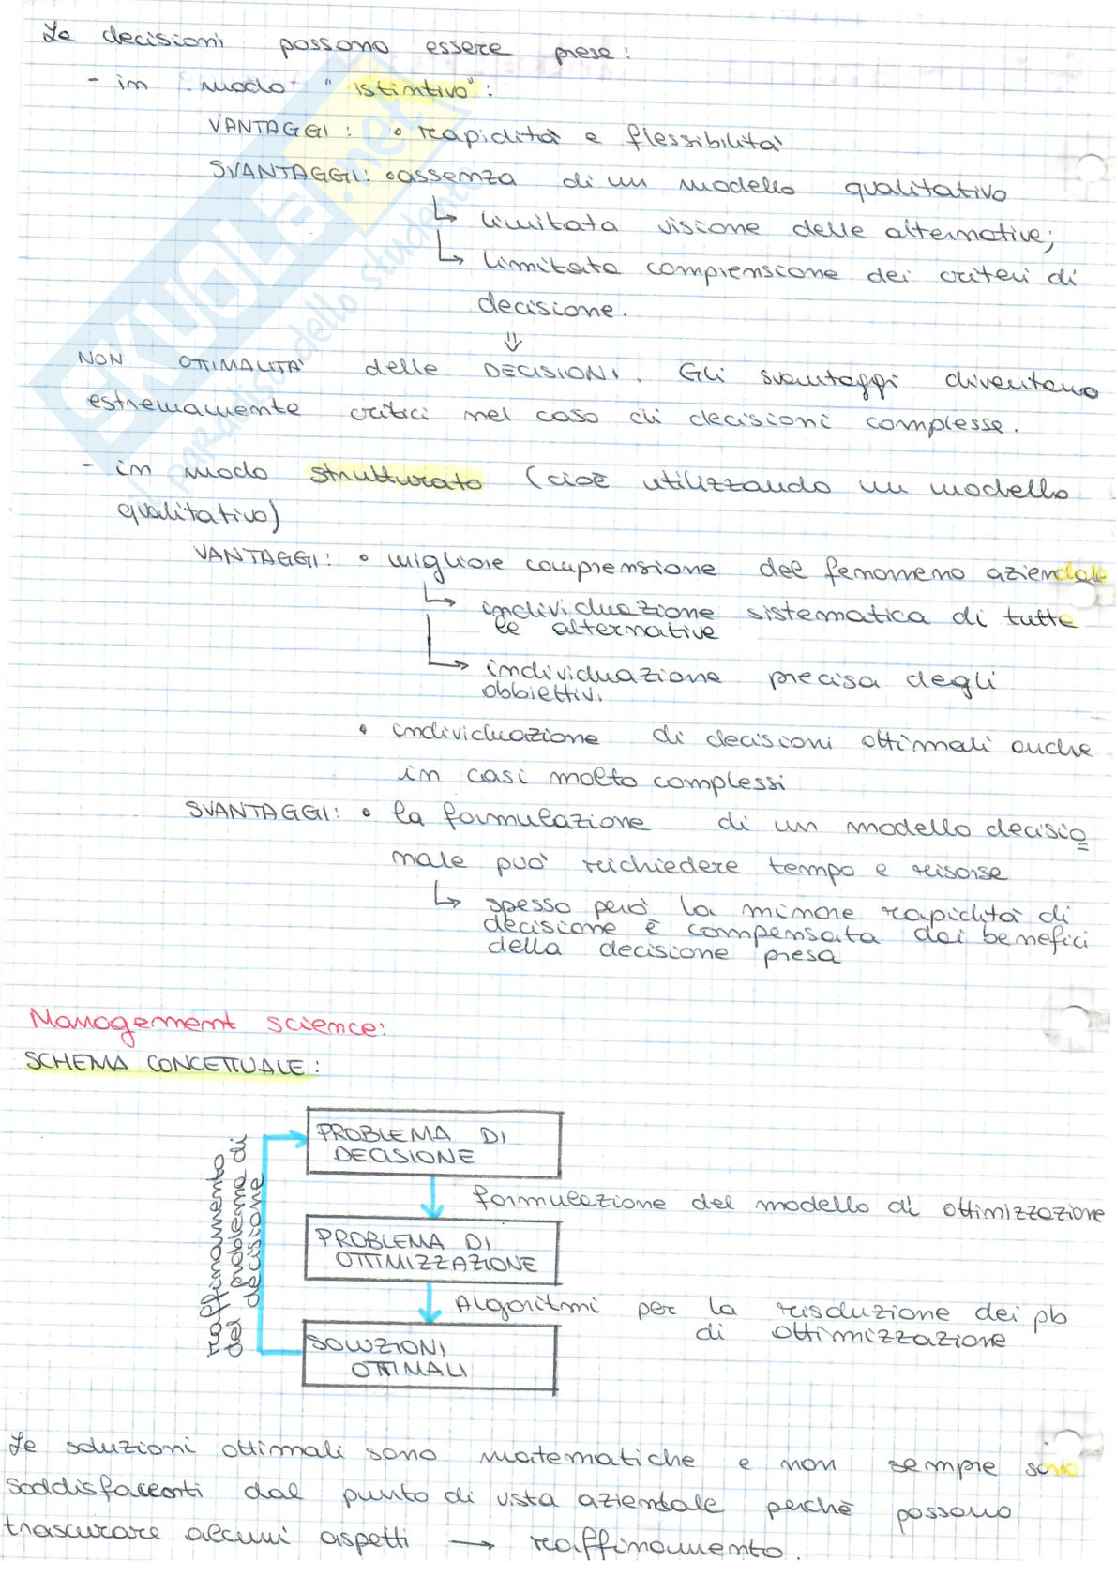 Le decisioni possono essere prese:
- in modo "istintivo":
VANTAGGI: • rapidità e flessibilità
SVANTAGGI: • assenza di un modello qualitativo
↳ limitata visione delle alternative;
↳ limitata comprensione dei criteri di
decisione.
⇓
NON OTTIMALITA' delle DECISIONI. Gli svantaggi diventano
estremamente critici nel caso di decisioni complesse.
- in modo strutturato (cioè utilizzando un modello
qualitativo)
VANTAGGI: • migliore comprensione del fenomeno aziendale
↳ individuazione sistematica di tutte
le alternative
↳ individuazione precisa degli
obbiettivi.
• individuazione di decisioni ottimali anche
in casi molto complessi
SVANTAGGI: • la formulazione di un modello decisio
nale può richiedere tempo e risorse
↳ spesso però la minore rapidità di
decisione è compensata dai benefici
della decisione presa
Management science:
SCHEMA CONCETTUALE:
PROBLEMA DI
DECISIONE
formulazione del modello di ottimizzazione
PROBLEMA DI
OTTIMIZZAZIONE
Algoritmi per la risoluzione dei pb
di ottimizzazione
SOLUZIONI
OTTIMALI
raffinamento
del problema di
decisione
Le soluzioni ottimali sono matematiche e non sempre sono
soddisfacenti dal punto di vista aziendale perchè possono
trascurare alcuni aspetti → raffinamento.
SKUOLA.net
il paradiso dello studente